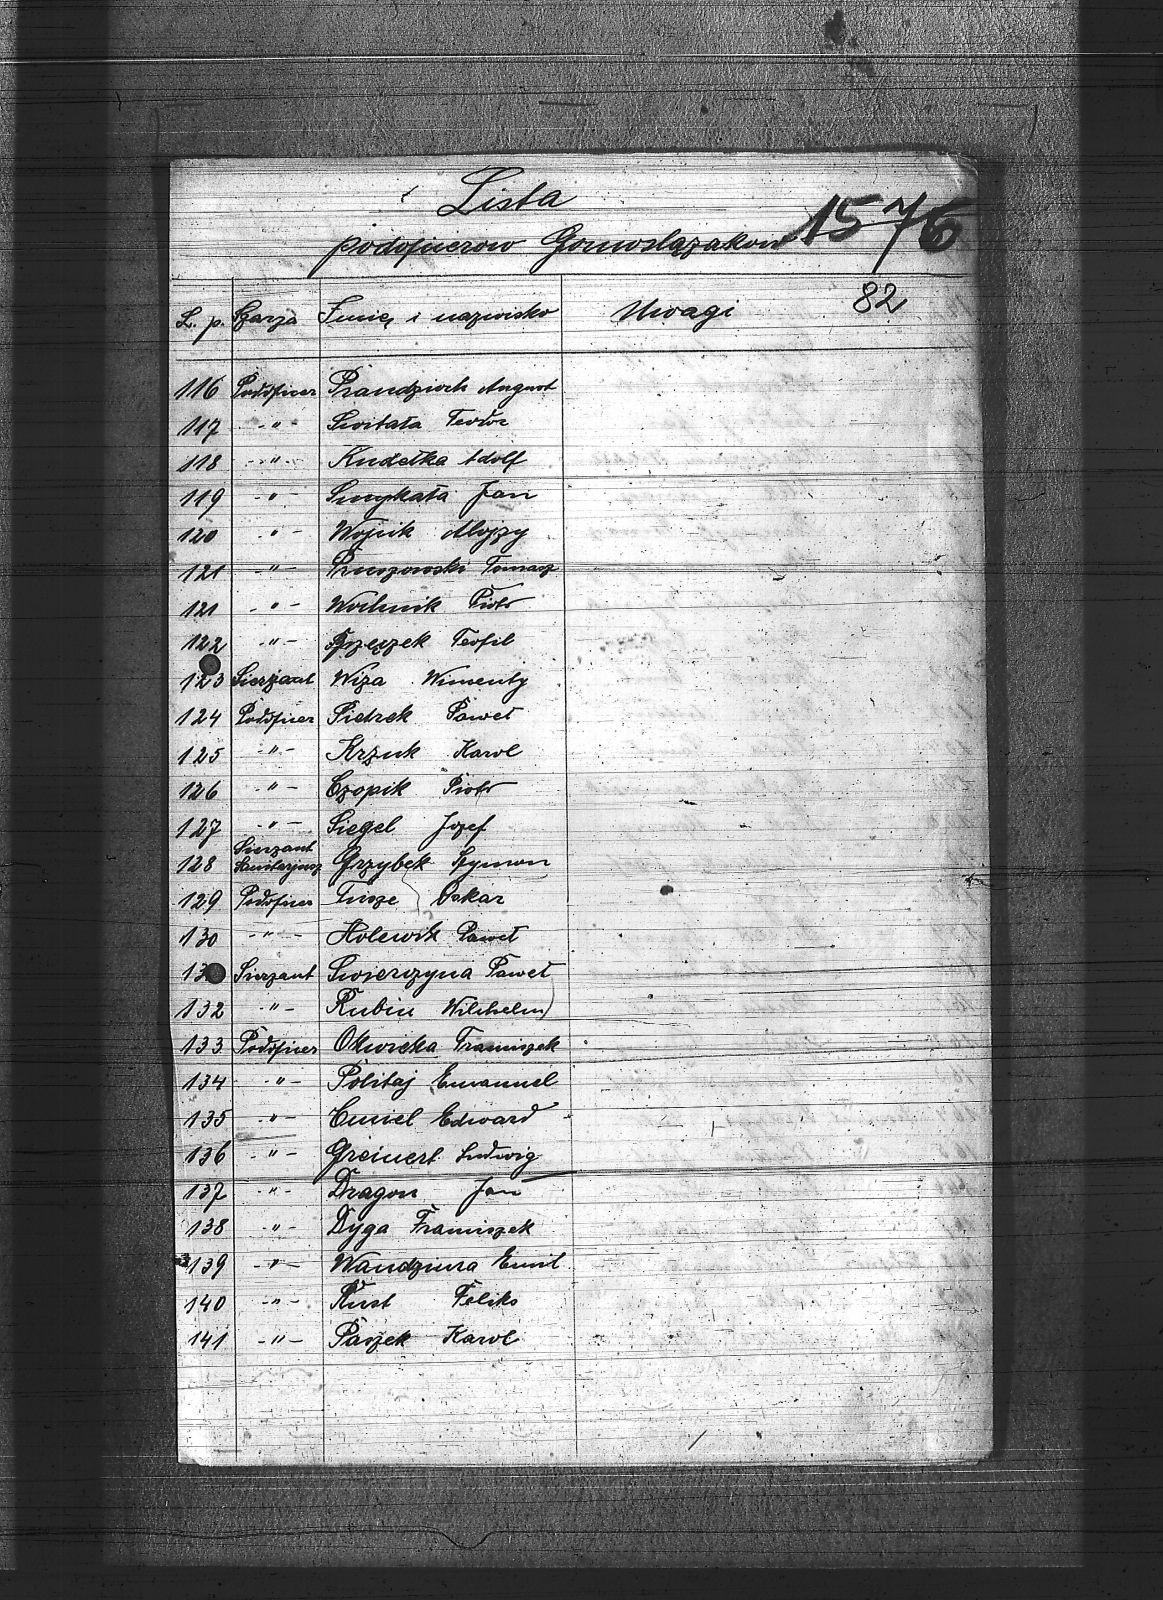 Lista
podoficerow Gornoslązakow 1576
82
L. p. Szarża Imię i nazwisko Uwagi
116 Podoficer August
117 -"- Switała Teodor
118 -"- Kudełka Adolf
119 -"- Smykała Jan
120 -"- Wojcik Alojzy
121 -"- Tomasz
121 -"- Wochnik Piotr
122 -"- Teofil
123 Sierżant Wiza Wincenty
124 Podoficer Pietrek Paweł
125 -"- Karol
126 -"- Czopik Piotr
127 -"- Siegel Jozef
128 Sierzant Sanitarjusz Grzybek Szymon
129 Podoficer Oskar
130 -"- Holewik Paweł
13 Sierzant Swierczyna Paweł
132 -"- Rubin Wilchelm
133 Podoficer Franciszek
134 -"- Politaj Emanuel
135 -"- Cmiel Edward
136 -"- Greinert Ludwig
137 -"- Dragon Jan
138 -"- Dyga Franciszek
139 -"- Wandziura Emil
140 -"- Kust Feliks
141 -"- Paszek Karol